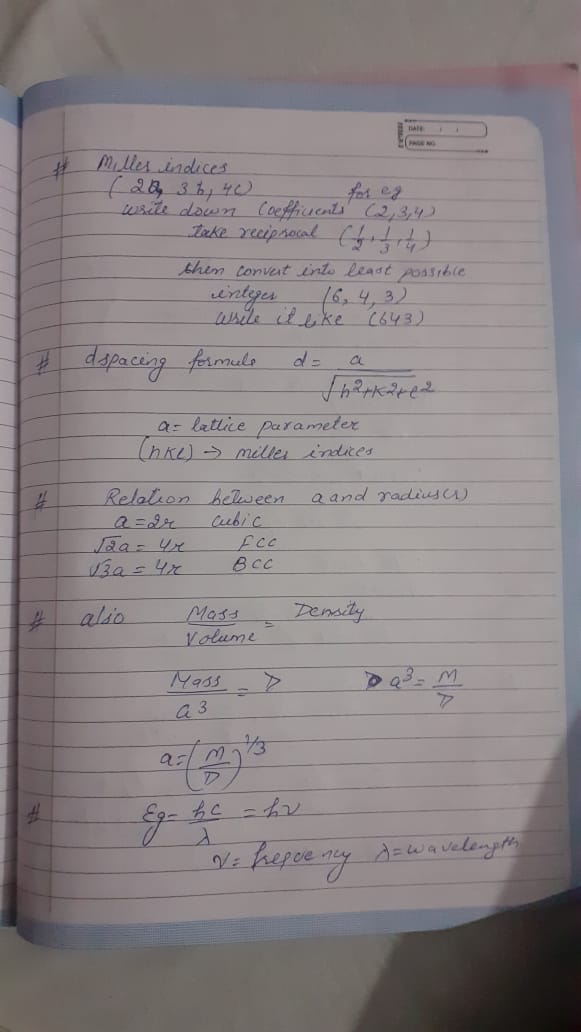 DATE: / /
PAGE NO.
# Miller indices
(2a, 3b, 4c) for eg
write down coefficients (2,3,4)
take reciprocal (1/2, 1/3, 1/4)
then convert into least possible
integer (6, 4, 3)
write it like (643)
# dspacing formula d = a / √h²+k²+l²
a = lattice parameter
(hkl) → miller indices
# Relation between a and radius(r)
a = 2r cubic
√2a = 4r FCC
√3a = 4r BCC
# also Mass / Volume = Density
Mass / a³ = D a³ = M / D
a = (M / D)^1/3
# Eg = hc / λ = hν
ν = frequency λ = wavelength